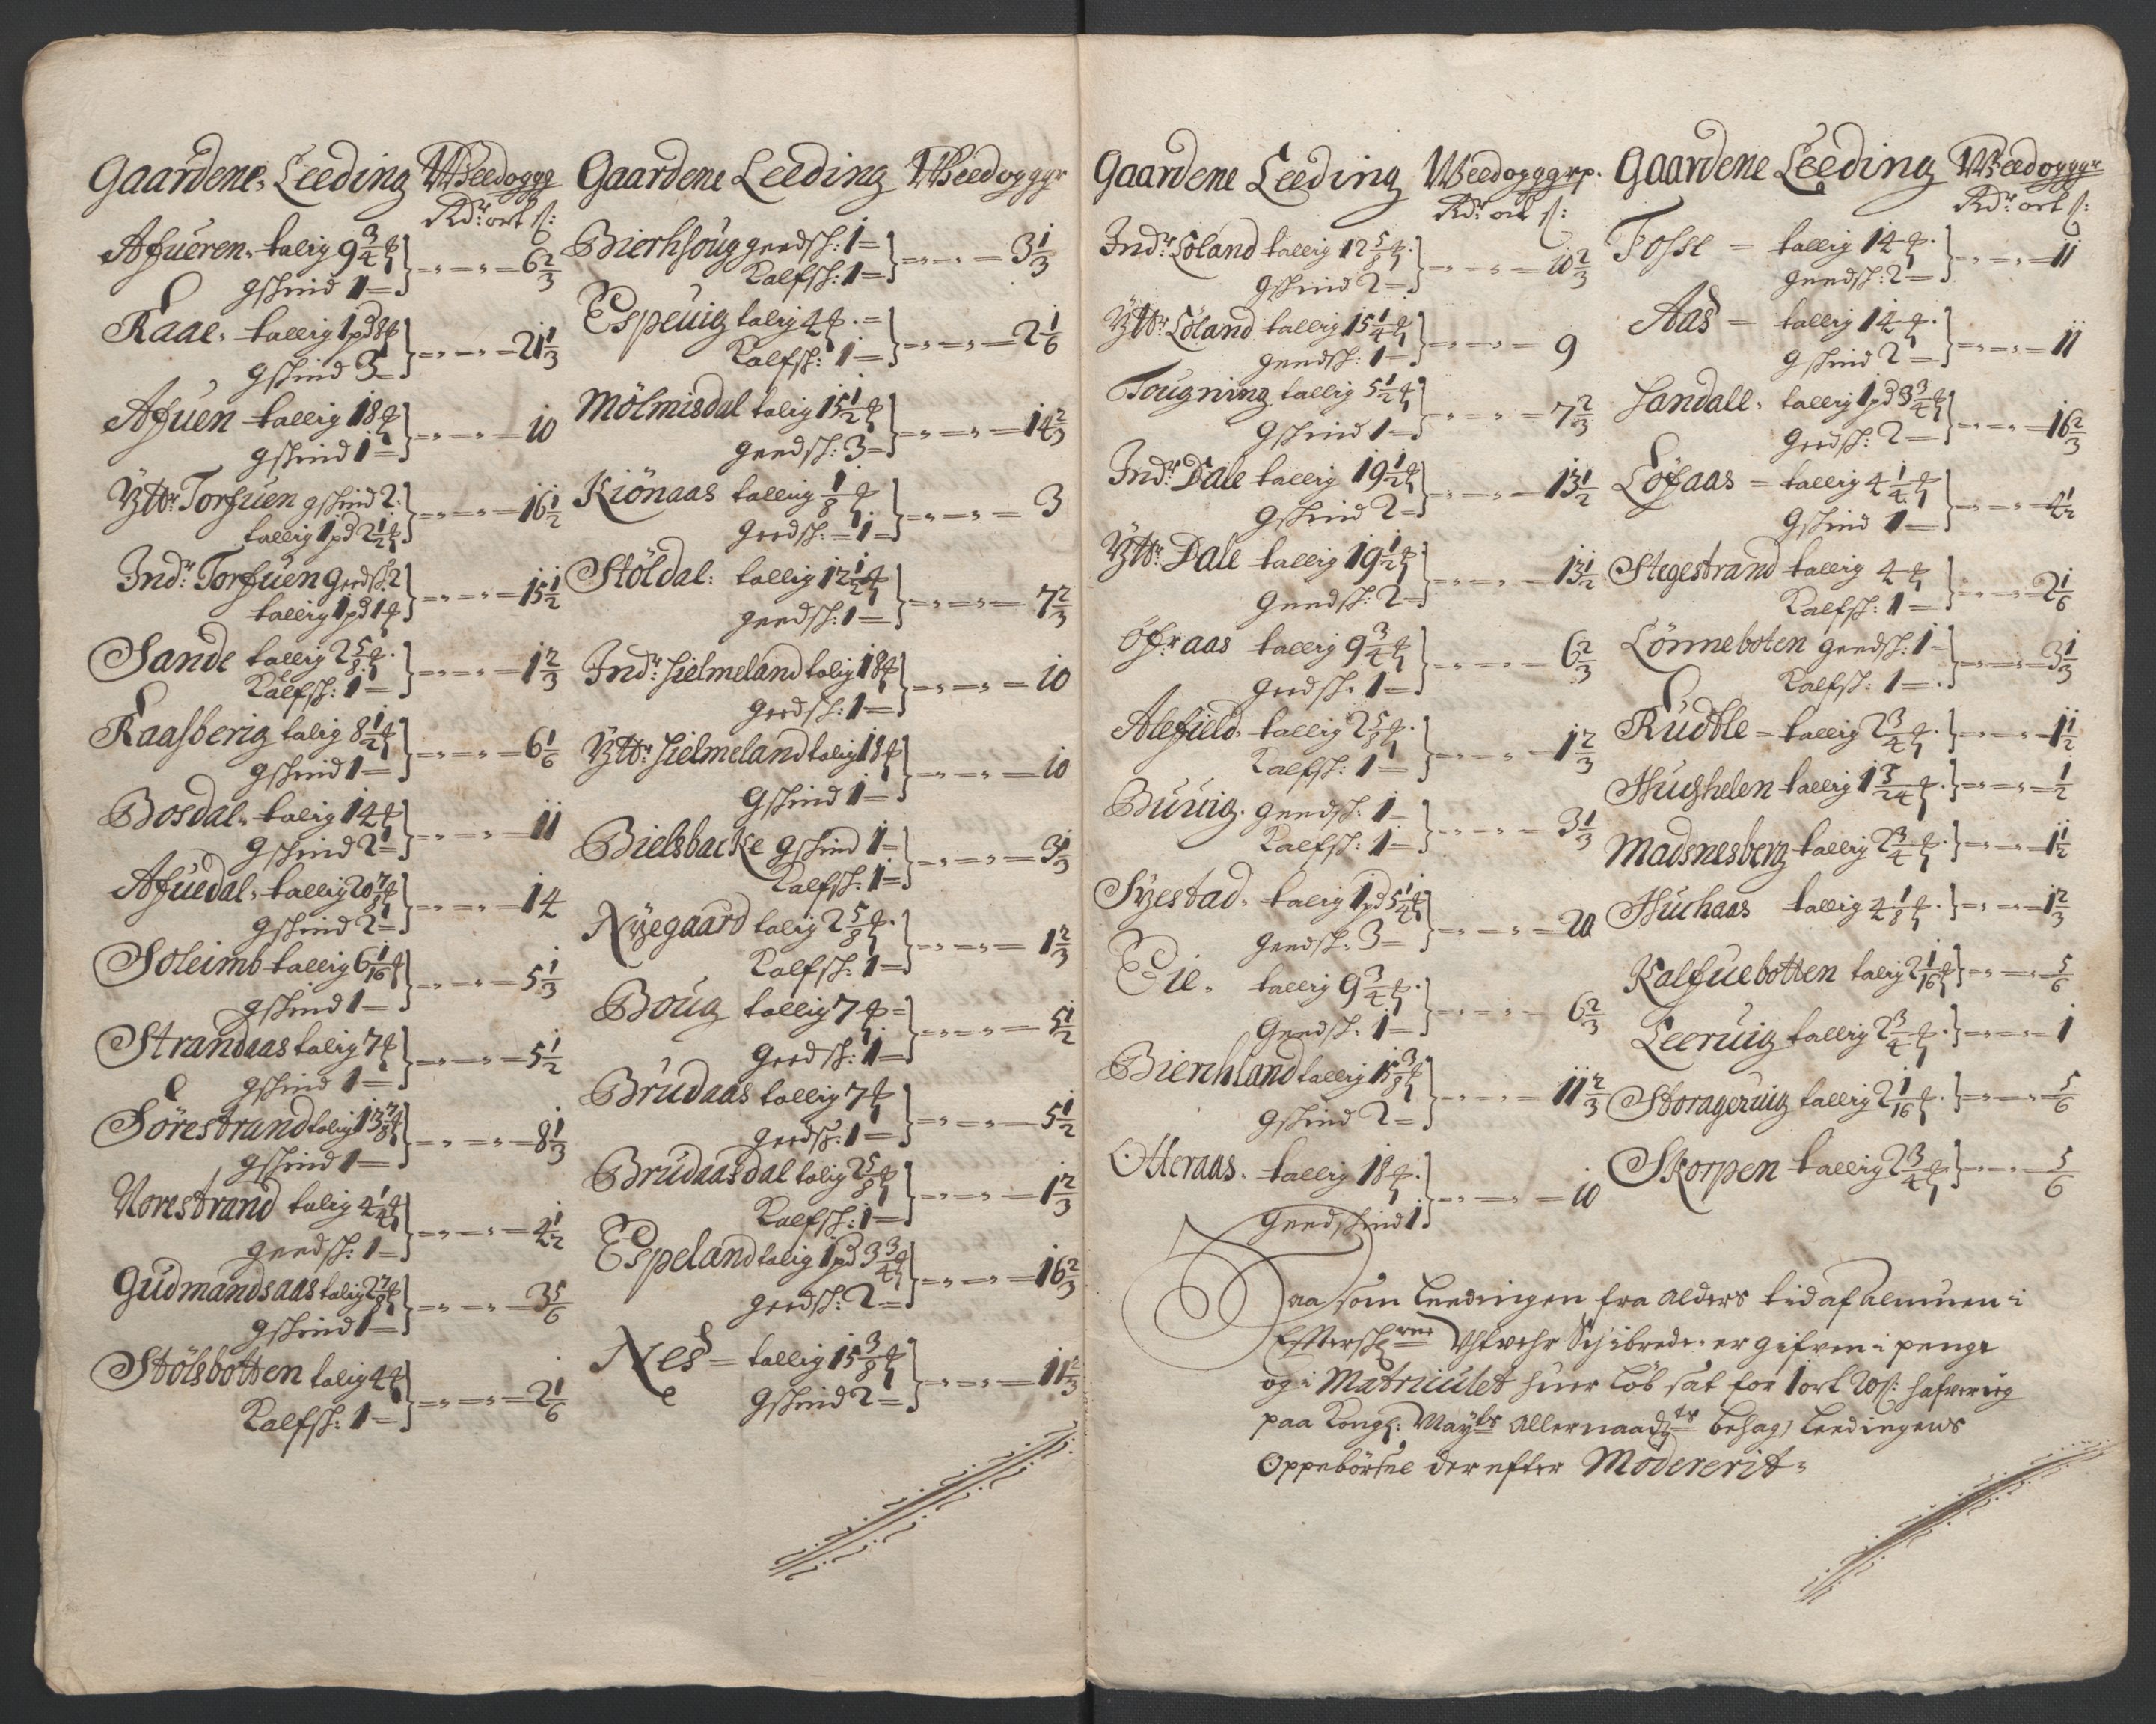 Gaardene. Leeding Weedoggg
Rdr: ort s:
Afueren. tallig 9 3/4 ℔
gskind 1 = } 6 2/3
Raae. tallig 1 pd 8 ℔
gskind 3 } 21 1/3
Afuen tallig 18 ℔
gskind 1 = } 10
Yttr: Torfuen gskind 2
tallig 1 pd 2 1/2 ℔ } 16 1/2
Indr: Torfuen geedsk: 2
tallig 1 pd 1 ℔ } 15 1/2
Sande tallig 2 5/8 ℔
Kalfsk: 1 = } 1 2/3
Raasberig talig 8 1/2 ℔
gskind 1 = } 6 1/6
Bosdal. talig 14 ℔
gskind 2 = } 11
Afuedal. tallig 20 7/8 ℔
gskind 2 = } 14
Soleimb tallig 6 1/16 ℔
gskind 1 = } 5 1/3
Strandaas talig 7 ℔
gskind 1 = } 5 1/2
Sörestrand talig 13 7/8 ℔
gskind 1 = } 8 1/3
Norestrand talig 4 1/4 ℔
geedsk: 1 = } 4 1/2
Gudmandsaas talig 2 7/8 ℔
gskind 1 = } 3 5/6
Stölsbotten talig 4 ℔
Kalfsk: 1 = } 2 1/6
Gaardene Leeding Weedoggr
Bierhsoug geedsk: 1 =
Kalfsk: 1 = } 3 1/3
Espeuig talig 4 ℔ =
Kalfsk: 1 = } 2 1/6
Mölmisdal talig 15 1/2 ℔
geedsk: 3 = } 14 2/3
Kiönaas tallig 1/8 ℔
geedsk: = 1 = } 3
Stöldal: tallig 12 1/2 ℔
geedsk: 1 = } 7 2/3
Indr: Hielmeland talig 18 ℔
geedsk: 1 = } 10
Yttr: Hielmeland talig 18 ℔
gskind 1 = } 10
Bielsbacke gskind 1 =
Kalfsk: 1 = } 3 1/3
Nyegaard talig 2 5/8 ℔
Kalfsk: 1 = } 1 2/3
Boug tallig 7 ℔ =
geedsk: 1 = } 5 1/2
Brudaas tallig 7 ℔
geedsk: 1 = } 5 1/2
Brudaasdal talig 2 5/8 ℔
Kalfsk: 1 = } 1 2/3
Espeland talig 1 pd 3 3/4 ℔
geedsk: 2 = } 16 2/3
Nes = tallig 15 3/8 ℔
gskind 2 = } 11 2/3
Gaardene Leeding Weedogggrp.
Rdr: ort s:
Indr: Löland tallig 12 5/8 ℔
gskind 2 = } 10 2/3
Yttr: Löland tallig 15 1/4 ℔
geedsk: 1 = } 9
Tougning tallig 5 1/2 ℔
gskind 1 = } 7 2/3
Indr: Dale tallig 19 1/2 ℔
gskind 2 = } 13 1/2
Yttr: Dale tallig 19 1/2 ℔
geedsk: 2 = } 13 1/2
Öfr aas tallig 9 3/4 ℔
geedsk. 1 = } 6 2/3
Alefield. tallig 2 5/8 ℔
Kalfsk: 1 = } 1 2/3
Buuig. geedsk: 1 =
Kalfsk: 1 = } 3 1/3
Syestad. talig 1 pd 5 1/4 ℔
geedsk: 3 = } 20
Eie. tallig 9 3/4 ℔
geedsk. 1 = } 6 2/3
Bierchland tallig 15 3/8 ℔
gskind 2 = } 11 2/3
Otteraas. tallig 18 ℔
geedskind 1 } 10
Gaardene Leeding Weedogggr
Rdr: ort s:
Fosse = tallig 14 ℔
geedsk: 2 = } 11
Aas = tallig 14 ℔
gskind 2 = } 11
Sandall. tallig 1 pd 3 3/4 ℔
geedsk: 2 = } 16 2/3
Löfaas = tallig 4 1/4 ℔
gskind 1 = } 4 1/2
Stegestrand tallig 4 ℔
Kalfsk: 1 = } 2 1/6
Lönneboten geedsk: 1 =
Kalfsk: 1 = } 3 1/3
Rudtle = tallig 2 3/4 ℔ } 1 1/2
Hughelen tallig 1 5/24 ℔ } 1/2
Madsnesberg tallig 2 3/4 ℔ } 1 1/2
Huchaas tallig 4 1/8 ℔ } 1 2/3
Kalfuebotten talig 2 1/16 ℔ } 5/6
Leeruig tallig 2 3/4 ℔ } 1
Storageruig tallig 2 1/16 ℔ } 5/6
Skorpen tallig 2 3/4 ℔ } 5/6
Saa som Leedingen fra Alders tid af almuen i
Efftersk:ne Skibrede. er gifven i penge
og i Matriculet huer Löb sat for 1 ort 20 s: hafver ieg
paa Kongl: Mayts Allernaadgste behag, Leedingens
Oppebörsel derefter Modererit.